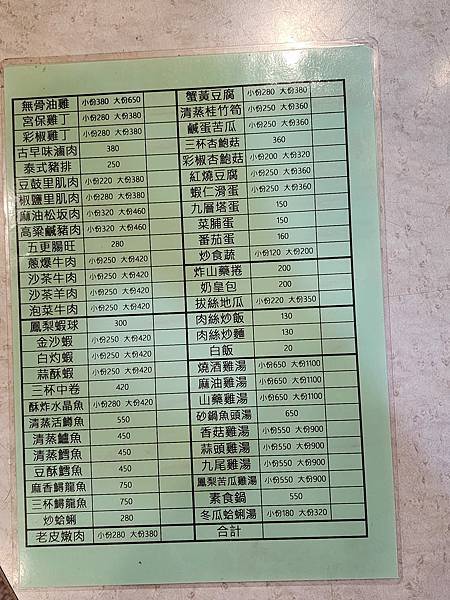 無骨油雞 小份380 大份650
宮保雞丁 小份280 大份380
彩椒雞丁 小份280 大份380
古早味滷肉 380
泰式豬排 250
豆豉里肌肉 小份220 大份380
椒鹽里肌肉 小份280 大份380
麻油松坂肉 小份320 大份460
高粱鹹豬肉 小份320 大份460
五更腸旺 280
蔥爆牛肉 小份250 大份420
沙茶牛肉 小份250 大份420
沙茶羊肉 小份250 大份420
泡菜牛肉 小份250 大份420
鳳梨蝦球 300
金沙蝦 小份250 大份420
白灼蝦 小份250 大份420
蒜酥蝦 小份250 大份420
三杯中卷 420
酥炸水晶魚 小份280 大份420
清蒸活鱒魚 550
清蒸鱸魚 450
清蒸鱈魚 450
豆酥鱈魚 450
麻香鱘龍魚 750
三杯鱘龍魚 750
炒蛤蜊 280
老皮嫩肉 小份280 大份380
蟹黃豆腐 小份280 大份380
清蒸桂竹筍 小份250 大份360
鹹蛋苦瓜 小份250 大份360
三杯杏鮑菇 360
彩椒杏鮑菇 小份200 大份320
紅燒豆腐 小份250 大份360
蝦仁滑蛋 小份250 大份360
九層塔蛋 150
菜脯蛋 150
番茄蛋 160
炒食蔬 小份120 大份200
炸山藥捲 200
奶皇包 200
拔絲地瓜 小份220 大份350
肉絲炒飯 130
肉絲炒麵 130
白飯 20
燒酒雞湯 小份650 大份1100
麻油雞湯 小份650 大份1100
山藥雞湯 小份650 大份1100
砂鍋魚頭湯 650
香菇雞湯 小份550 大份900
蒜頭雞湯 小份550 大份900
九尾雞湯 小份550 大份900
鳳梨苦瓜雞湯 小份550 大份900
素食鍋 550
冬瓜蛤蜊湯 小份180 大份320
合計